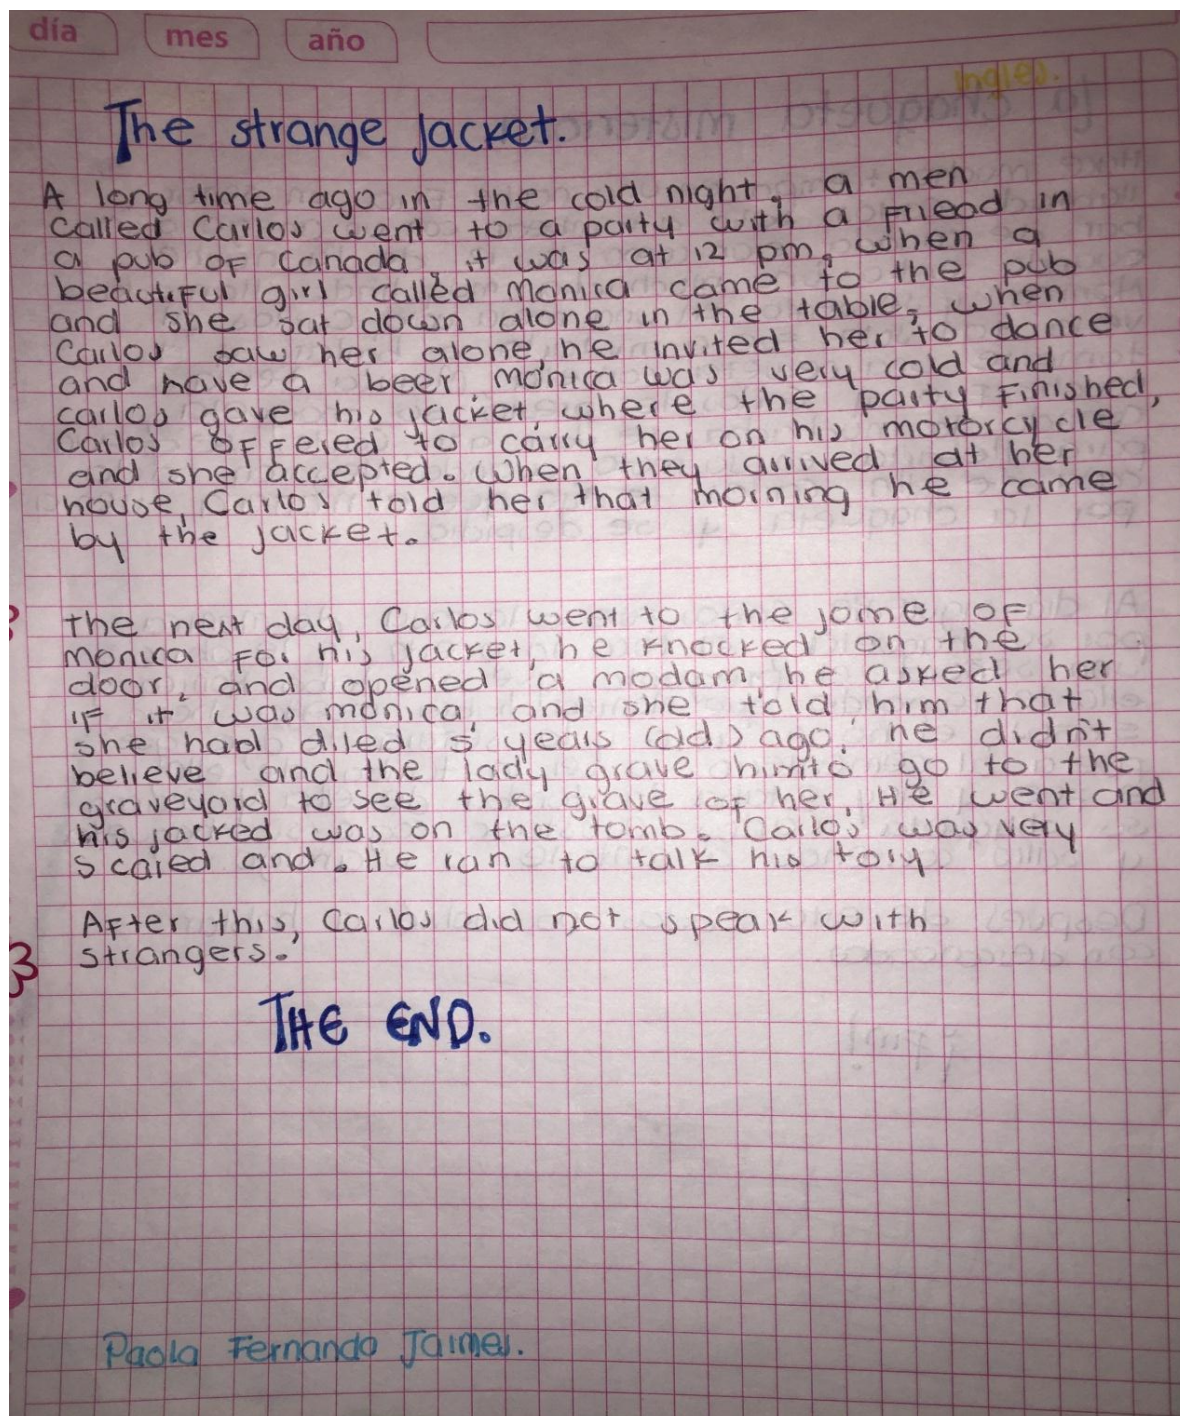 día
mes
año
Ingles.
The strange Jacket.
A long time ago in the cold night, a men
called Carlos went to a party with a Friend in
a pub OF canada, it was at 12 pm, when a
beautiful girl called Monica came to the pub
and she sat down alone in the table, when
Carlos saw her alone, he invited her to dance
and have a beer monica was very cold and
carlos gave his jacket, where the party Finished,
Carlos oFFered to carry her on his motorcycle
and she accepted. When they arrived at her
house, Carlos told her that morning he came
by the jacket.
the next day, Carlos went to the jome OF
monica For his jacket, he knocked on the
door, and opened a modam he asked her
iF it was monica, and she told him that
she had diled 5 years (ad) ago. he didn't
believe and the lady grave himto go to the
graveyard to see the grave of her. He went and
his jacked was on the tomb. Carlos was very
scared and. He ran to talk his tory
AFter this, Carlos did not speak with
strangers.
THE END.
Paola Fernanda Jaimes.